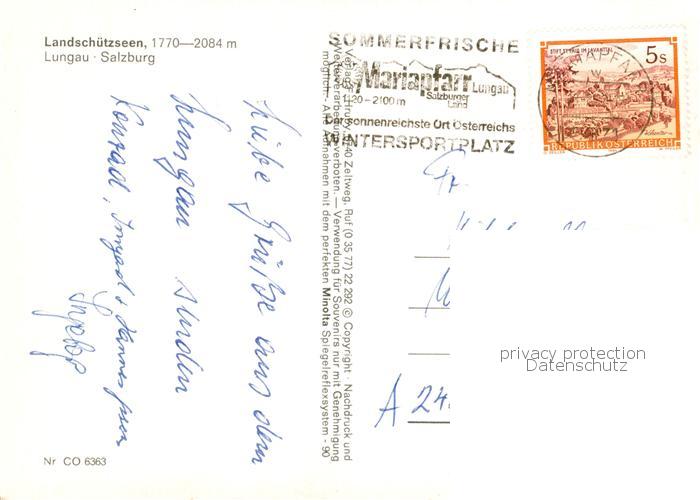 Landschützseen, 1770—2084 m
Lungau · Salzburg
Liebe Grüße aus dem
Lungau senden
Konrad, Irmgard + Hannes
Ingeborg
Nr CO 6363
Verlag Hruby, 8740 Zeltweg, Ruf (0 35 77) 22 292 © Copyright · Nachdruck und
Weiterverarbeitung verboten. — Verwendung für Souvenirs nur mit Genehmigung
möglich · Alle Aufnahmen mit dem perfekten Minolta Spiegelreflexsystem - 90
SOMMERFRISCHE
Mariapfarr Lungau
Salzburger
Land
1120-2100 m
Der sonnenreichste Ort Österreichs
WINTERSPORTPLATZ
STIFT ST. PAUL IM LAVANTTAL
5 s
REPUBLIK ÖSTERREICH
Fr.
A 24
privacy protection
Datenschutz